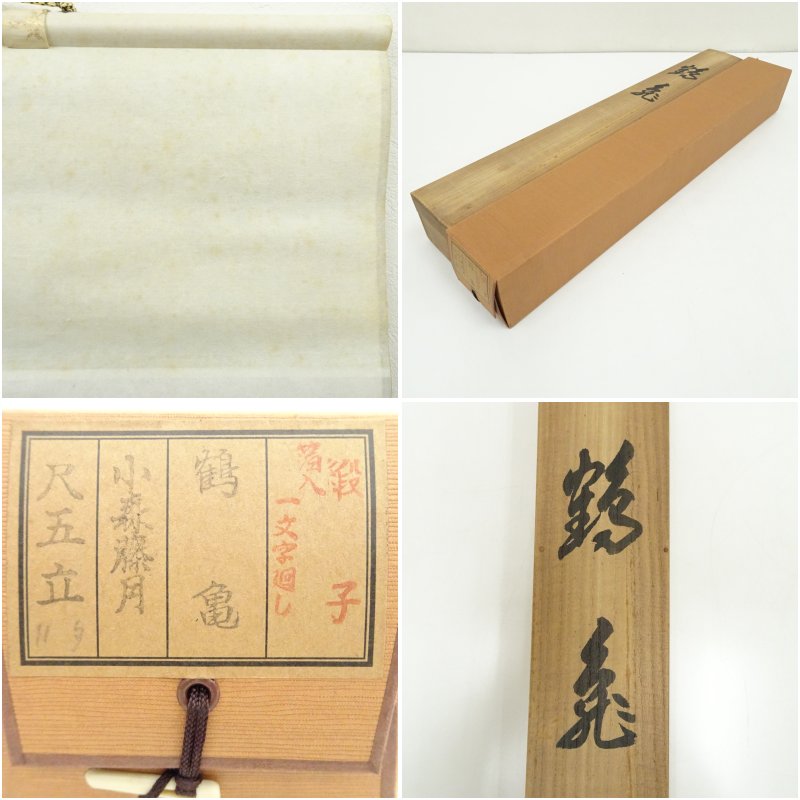 鶴亀
緞子
箔入
一文字廻し
鶴亀
小森藤月
尺五立
鶴亀